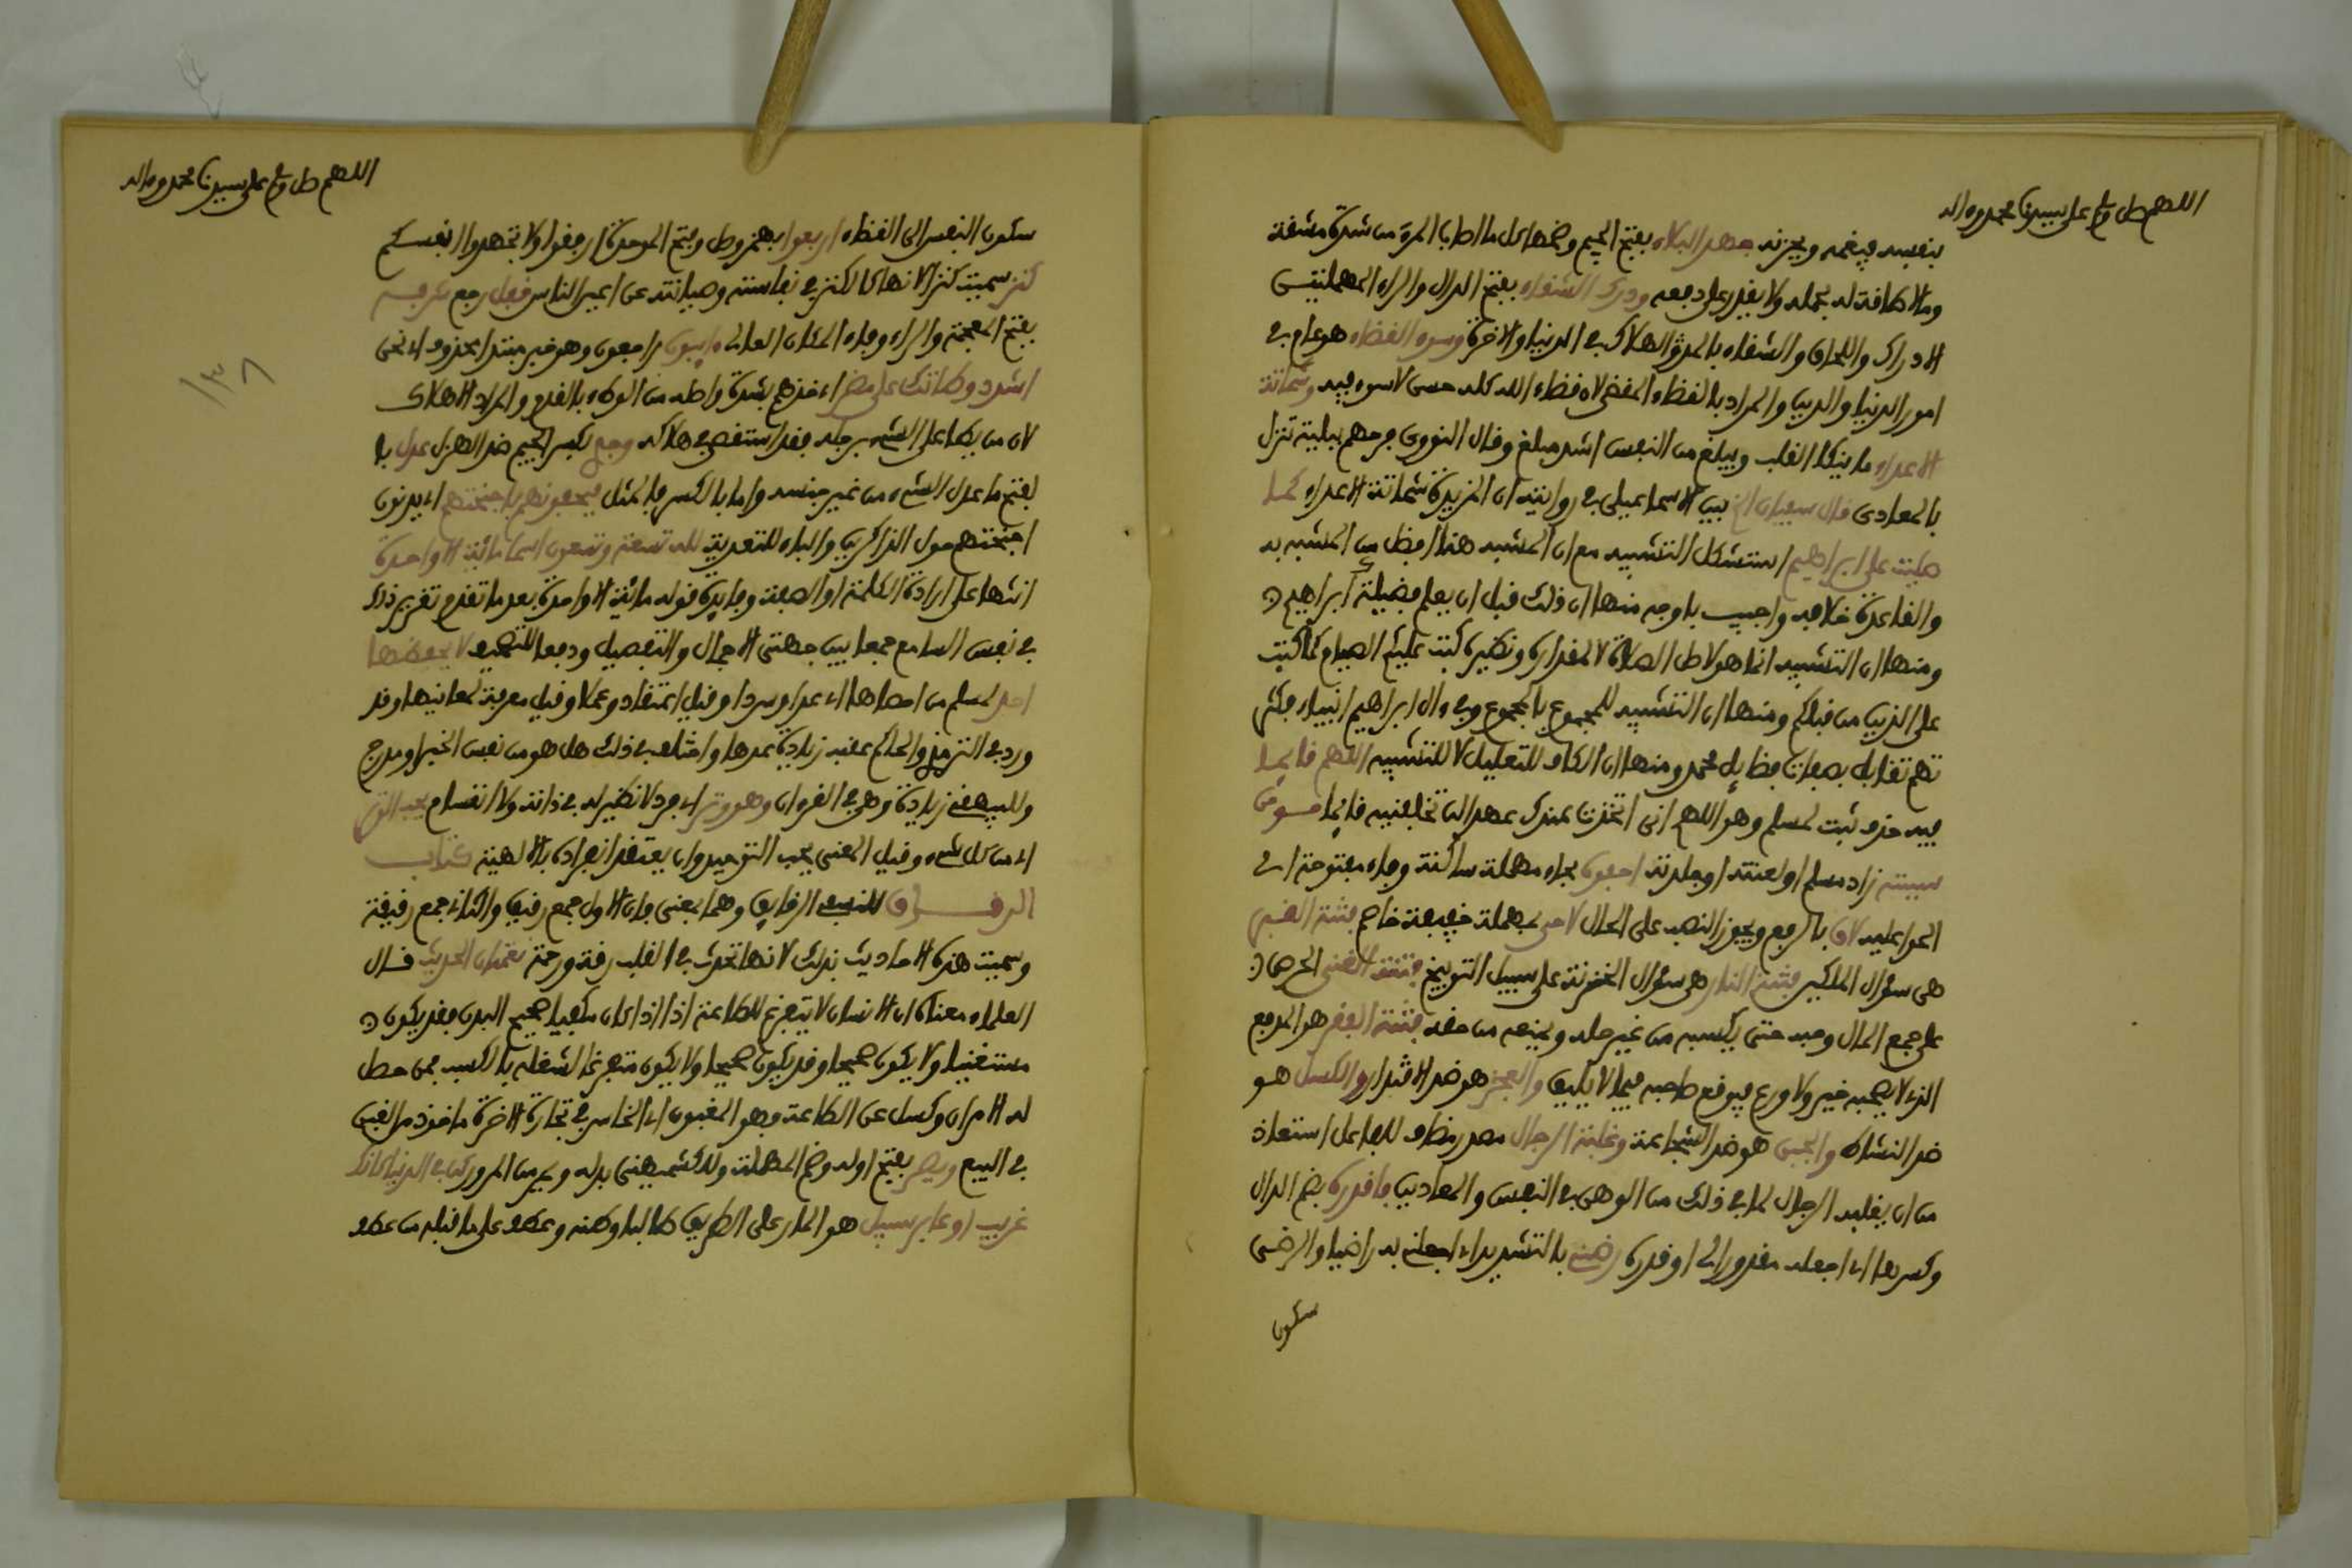 اللهم صل وسلم على سيدنا محمد وءاله
بنفسه فيغمه ويحزنه جهد البلاء بفتح الجيم وضمها كل ما اصاب المرء من شدة مشقة
وما لا طاقة له بحمله ولا يقدر على دفعه ودرك الشقاء بفتح الدال والراء المهملتين
الادراك واللحاق والشقاء بالمد والهلاك في الدنيا والاخرة وسوء القضاء هو عام في
امور الدنيا والدين والمراد بالقضاء المقضى لان قضاء الله كله حسن لا سوء فيه وشماتة
الاعداء ما ينكا القلب ويبلغ من النفس اشد مبلغ وقال النووى فرحهم ببلية تنزل
بالمعادى قال سفيان الخ بين الاسماعيلى في روايته ان المزيدة شماتة الاعداء كما
صليت على ابراهيم استشكل التشبيه مع ان المشبه هنا افضل من المشبه به
والقاعدة خلافه واجيب باوجه منها ان ذلك قبل ان يعلم فضيلة ابراهيم
ومنها ان التشبيه انما هو لاصل الصلاة لا لمقداره ونظيره كتب عليكم الصيام كما كتب
على الذين من قبلكم ومنها ان التشبيه للمجموع بالمجموع وفي ءال ابراهيم انبياء فكثر
تهم تقابل بصفات فضايل محمد ومنها ان الكاف للتعليل لا للتشبيه اللهم فايما
فيه حذف ثبت لمسلم وهو اللهم انى اتخذت عندك عهدا لن تخلفنيه فايما مومن
سببته زاد مسلم او لعنته او جلدته احفوه بحاء مهملة ساكنة وفاء مفتوحة اي
الحوا عليه لاف بالرفع ويجوز النصب على الحال لاحى بمهملة خفيفة خاصم فتنة القبر
هى سؤال الملكين فتنة النار هى سؤال الخزنة على سبيل التوبيخ فتنة الغنى الحرص
على جمع المال وحبه حتى يكسبه من غير حله ويمنعه من حقه فتنة الفقر هو المدقع
الذي لا يصحبه خير ولا ورع فيوقع صاحبه فيما لا يليق والعجز هو ضد الاقتدار والكسل هو
ضد النشاط والجبن هو ضد الشجاعة وغلبة الرجال مصدر مضاف للفاعل استعاذ
من ان يغلبه الرجال لما في ذلك من الوهن في النفس والمعاديين فاقدره بضم الدال
وكسرها اي اجعله مقدورا لى او قدره رضنى بالتشديد اي اجعلنى به راضيا والرضى
سكون
اللهم صل وسلم على سيدنا محمد وءاله
سكون النفس الى القضاء اربعوا بهمز وصل وفتح الموحدة ارفقوا ولا تجهدوا انفسكم
كنز سميت كنزا لانها كالكنز في نفاسته وصيانته عن اعين الناس قفل رجع
بفتح المعجمة والراء وفاء المكان العالى ءايبون راجعون وهو خبر مبتدا محذوف اي نحن
اشدد وطاتك على مضر اي خذهم بشدة واصله من الوطء بالقدم والمراد الاهلاك
لان من يطا على الشيء برجله فقد استقصى في هلاكه وجد بكسر الجيم ضد الهزل عدل با
لفتح ما عدل الشيء من غير جنسه واما بالكسر فالمثل فيحفونهم باجنحتهم اي يدنون
اجنحتهم حول الذاكرين والباء للتعدية لله تسعة وتسعون اسما مائة الا واحدة
انثها على ارادة الكلمة او الصفة وفايدة قوله مائة الا واحدة بعد ما تقدم تقرير ذلك
في نفس السامع جمعا بين جهتى الاجمال والتفصيل ودفعا للتصحيف لا يحفظها
احد لمسلم من احصاها اي عدا وسردا وقيل اعتقادا وعملا وقيل معرفة لمعانيها وقد
ورد في الترمذي والحاكم عقبه زيادة عدها واختلف في ذلك هل هو من نفس الخبر او مدرج
وللبيهقي زيادة وهى في القرءان وهو وتر اي فرد لا نظير له في ذاته ولا انقسام يحب الوتر
اي من كل شيء وقيل المعنى يحب التوحيد وان يعتقد انفراده بالالهية كتاب
الرقاق للنسفي الرقايق وهما بمعنى فان الاول جمع رقيق والثاني جمع رقيقة
وسميت هذه الاحاديث بذلك لانها تحدث في القلب رقة ورحمة نعمتان الحديث قال
العلماء معناه ان الانسان لا يتفرغ للطاعة اذا الا اذا كان مكفيا صحيح البدن فقد يكون
مستغنيا ولا يكون صحيحا وقد يكون صحيحا ولا يكون متفرغا لشغله بالكسب فمن حصل
له الامران وكسل عن الطاعة فهو المغبون اي الخاسر في تجارة الاخرة ماخوذ من الغبن
في البيع ويصر بفتح اوله وضم المهملة وللكشميهنى بدله ويمر من المرور كن في الدنيا كانك
غريب او عابر سبيل هو المار على الطريق طالبا وطنه وعطفه على ما قبله من عطف
١٣٨